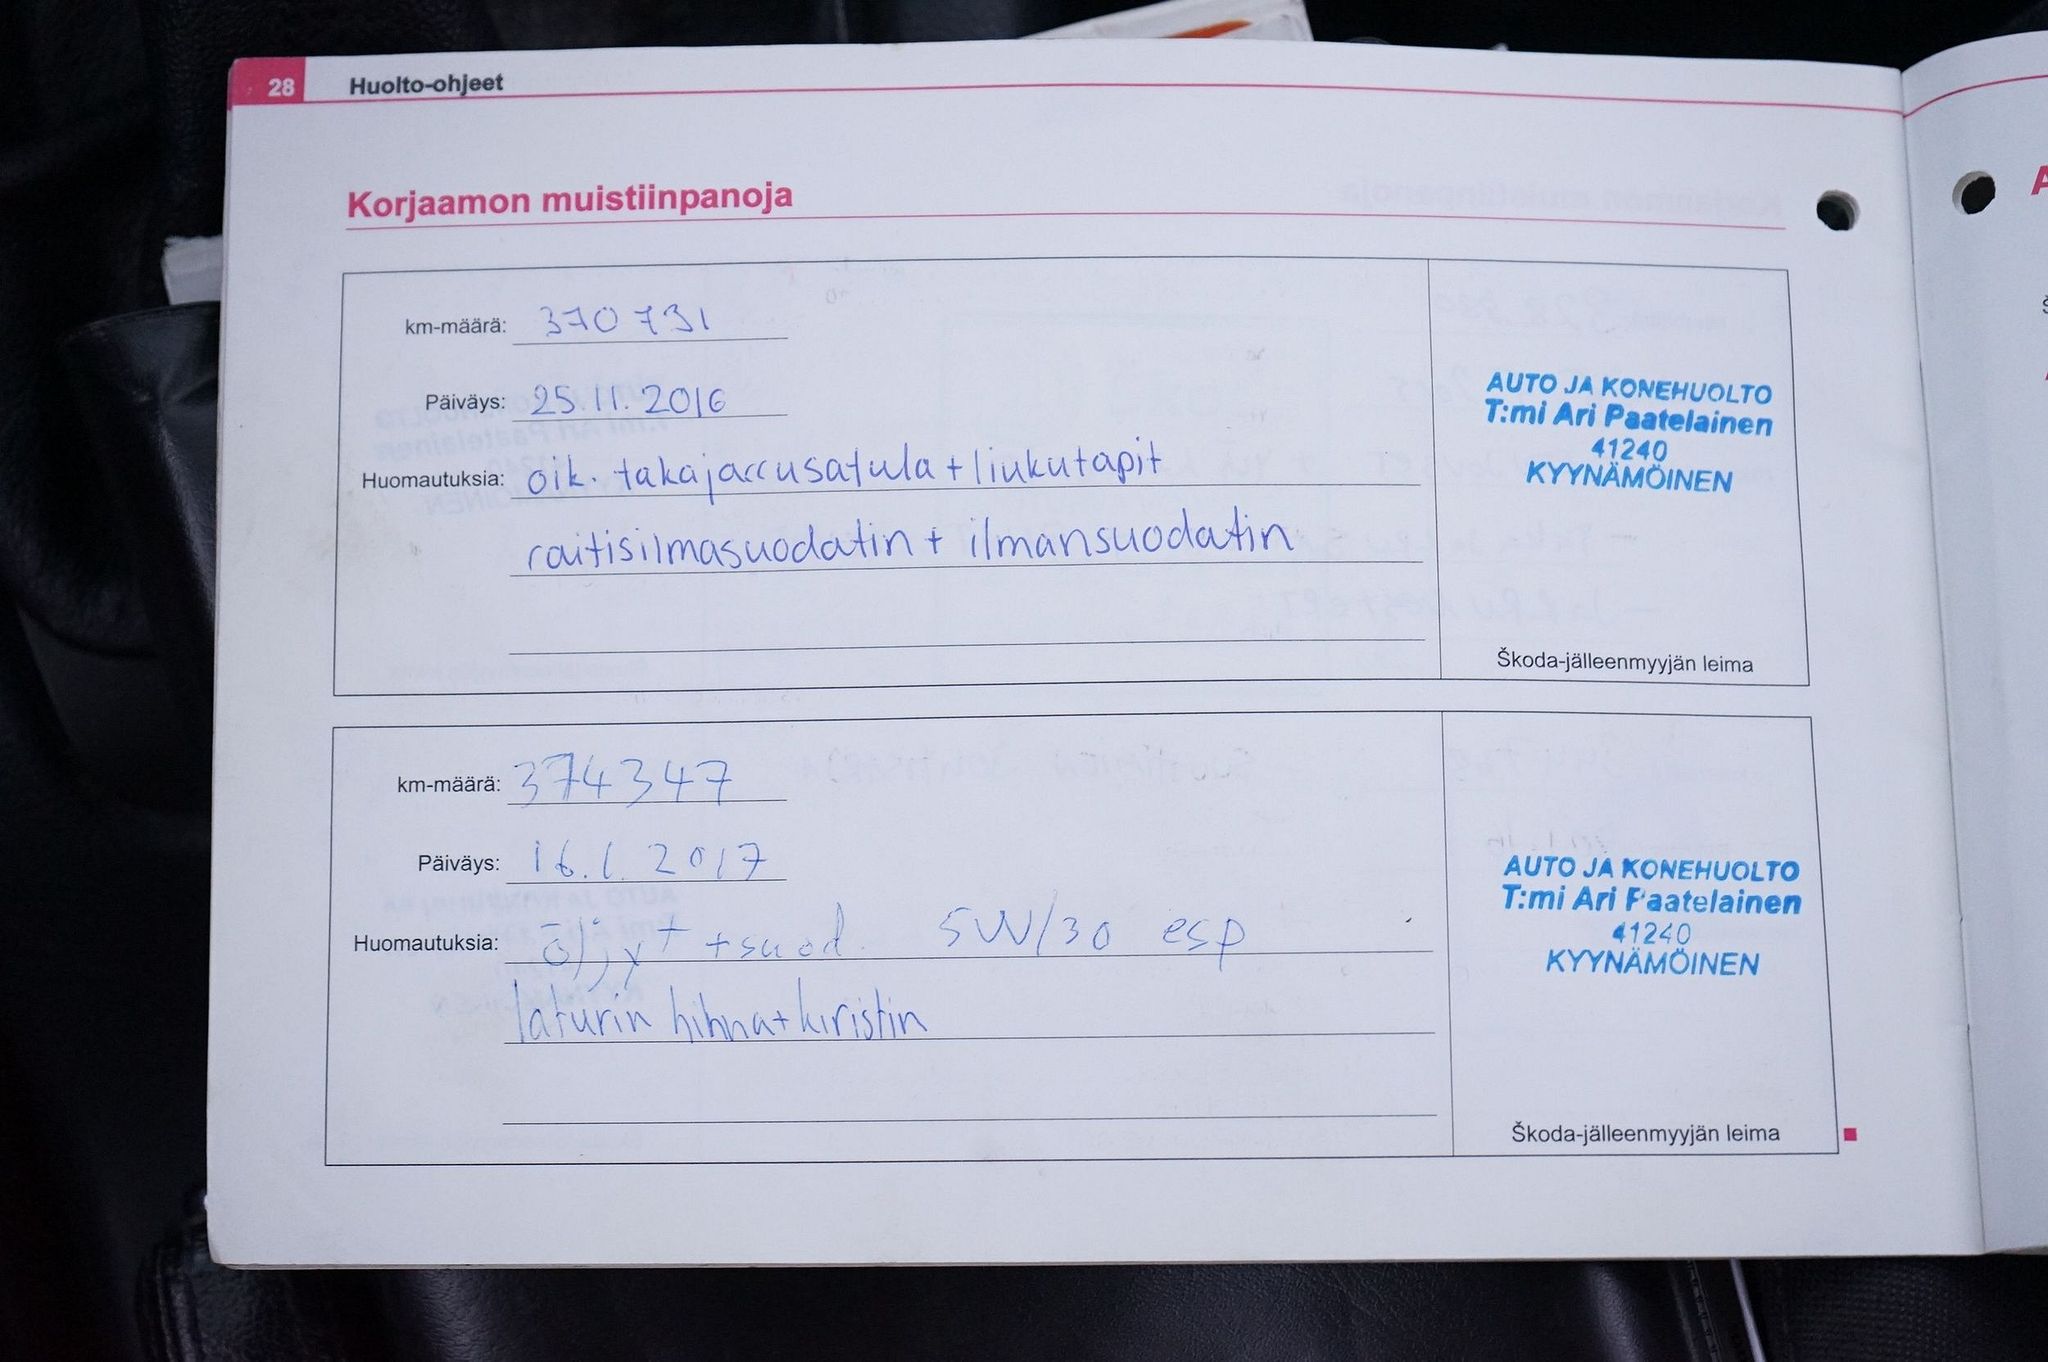 28 Huolto-ohjeet
Korjaamon muistiinpanoja
km-määrä: 370 731
Päiväys: 25.11.2016
Huomautuksia: oik. takajarrusatula + liukutapit
raitisilmasuodatin + ilmansuodatin
AUTO JA KONEHUOLTO
T:mi Ari Paatelainen
41240
KYYNÄMÖINEN
Škoda-jälleenmyyjän leima
km-määrä: 374347
Päiväys: 16.1.2017
Huomautuksia: öljyt + suod. 5W/30 esp
laturin hihna+kiristin
AUTO JA KONEHUOLTO
T:mi Ari Paatelainen
41240
KYYNÄMÖINEN
Škoda-jälleenmyyjän leima